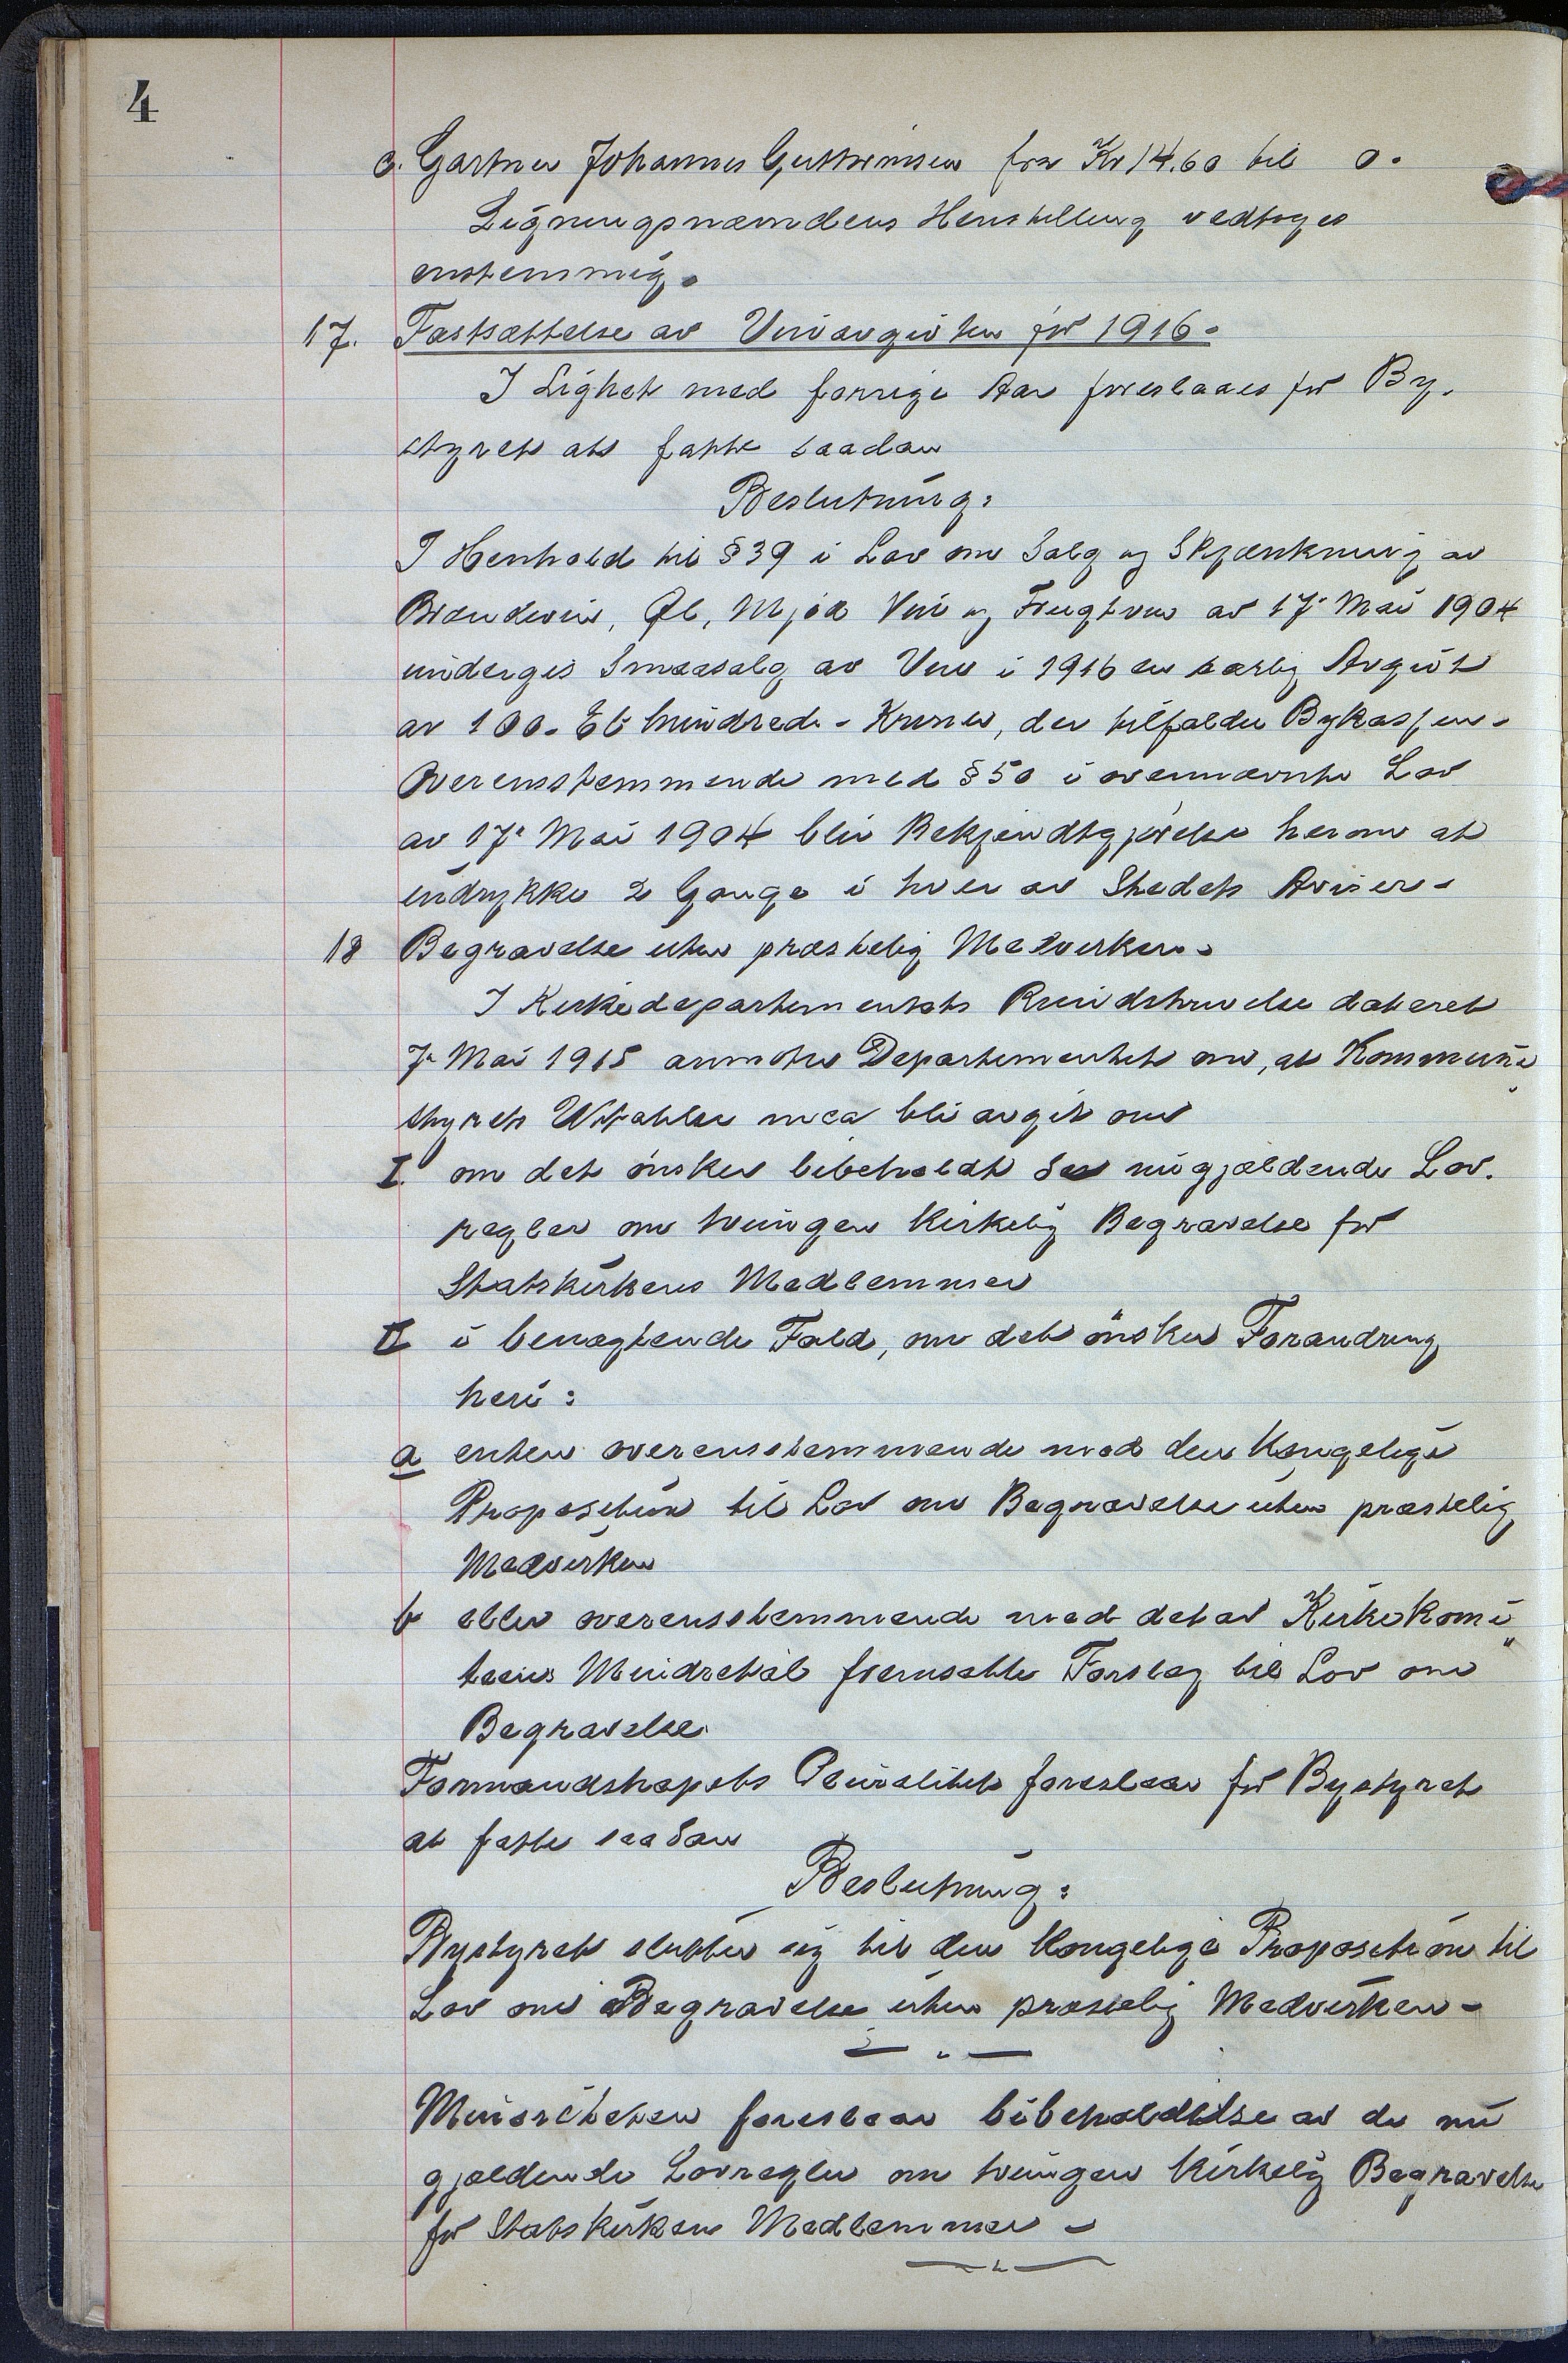 4
c. Gartner Johannes Guttormsen fra Kr 14.60 til 0.
Ligningsnævndens Henstilling vedtoges
enstemmig.
17. Fastsættelse av Vinavgiften for 1916.
I Lighet med forrige Aar foreslaaes for By-
styret at fatte saadan
Beslutning:
I Henhold til § 39 i Lov om Salg og Skjænkning av
Brændevin, Øl, Mjød Vin og Frugtvin av 17. Mai 1904
undergis Smaasalg av Vin i 1916 en særlig Avgift
av 100. Et hundrede - Kroner, der tilfalder Bykassen.
Overensstemmende med § 50 i ovennævnte Lov
av 17. Mai 1904 blir Bekjendtgjørelse herom at
indrykke 2 Gange i hver av Stedets Aviser.
18 Begravelse uten præstelig Medvirken.
I Kirkedepartementets Rundskrivelse dateret
7. Mai 1915 anmoder Departementet om, at Kommune
styrets Uttalelse maa bli avgit om
I. om det ønskes bibeholdt de nugjældende Lov.
regler om tvungen kirkelig Begravelse for
Statskirkens Medlemmer
II i benegtende Fald, om det ønskes Forandring
heri:
a enten overensstemmende med den Kongelige
Proposition til Lov om Begravelse uten præstelig
Medvirken
b eller overensstemmende med det av Kirkekomi
teens Mindretal fremsatte Forslag til Lov om
Begravelse.
Formandskapets Pluralitet foreslaar for Bystyret
at fatte saadan
Beslutning:
Bystyret slutter sig til den Kongelige Proposition til
Lov om Begravelse uten præstelig Medvirken.
Minoriteten foreslaar bibeholdelse av de nu
gjældende Lovregler om tvungen kirkelig Begravelse
for Statskirkens Medlemmer